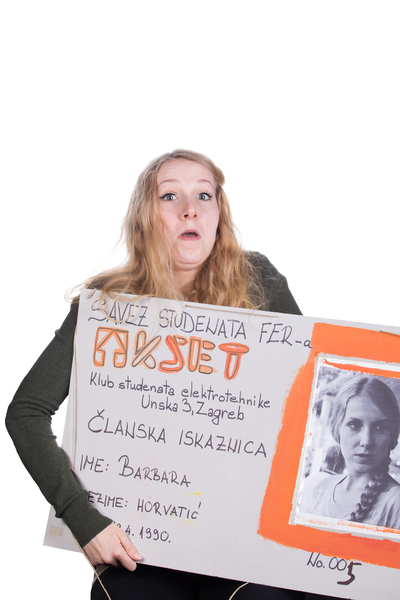 SAVEZ STUDENATA FER-a
AKSET
Klub studenata elektrotehnike
Unska 3, Zagreb
ČLANSKA ISKAZNICA
IME: BARBARA
EZIME: HORVATIĆ
4. 1990.
No. 005